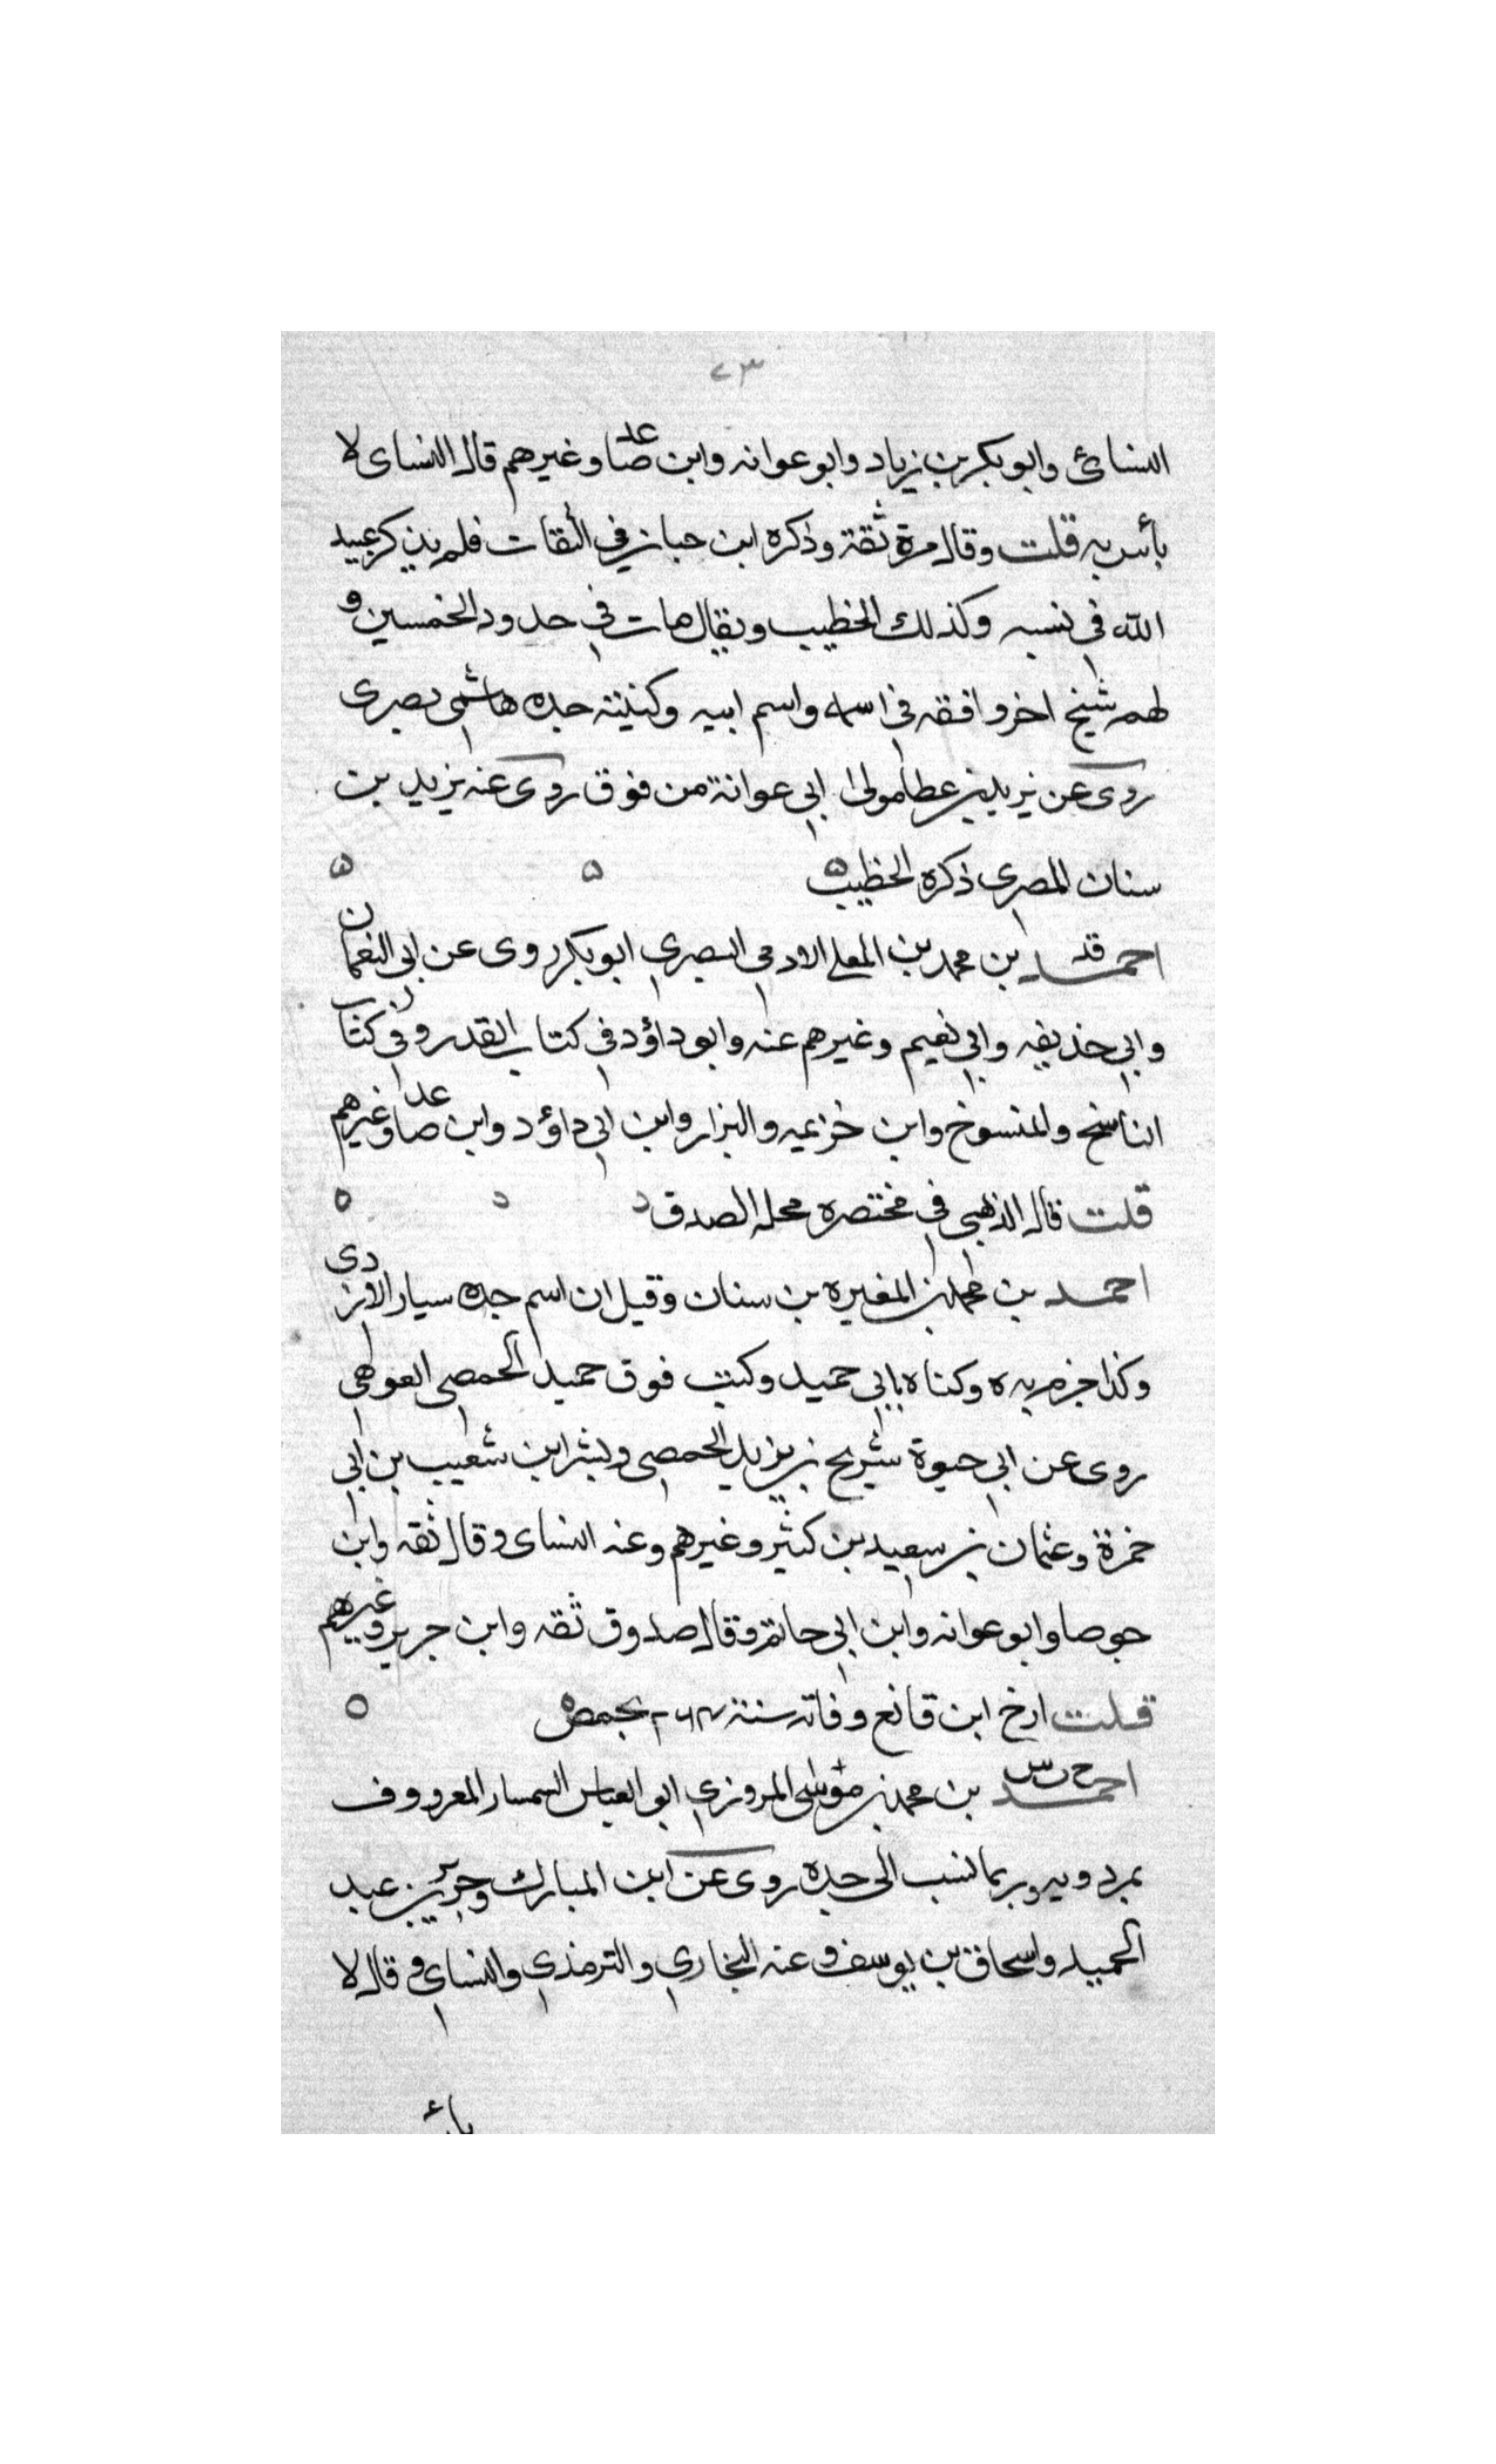 ٧٣
النسائ وابو بكر بن زياد وابو عوانه وابن صاعد وغيرهم قال النساى لا
بأس به قلت وقال مرة ثقة وذكره ابن حبان في الثقات فلم يذكر عبيد
الله في نسبه وكذلك الخطيب ويقال مات في حدود الخمسين و
لهم شيخ اخر وافقه في اسمه واسم ابيه وكنيته جده هاشمي بصرى
روى عن يزيد بن عطا مولى ابي عوانة من فوق روى عنه يزيد بن
سنان المصرى ذكره الخطيب ه ه ه
احمد قد بن محمد بن المعلى الادمي البصري ابو بكر روى عن ابي النعمان
وابي حذيفه وابي نعيم وغيرهم عنه وابو داؤد في كتاب القدر وفي كتاب
الناسخ والمنسوخ وابن خزيمه والبزار وابن ابي داؤد وابن صاعد وغيرهم
قلت قال الذهبي في مختصره محله الصدق ه
احمد بن محمد بن المغيره بن سنان وقيل ان اسم جده سيار الازدى
وكذا جزم به ه وكناه بابي حميد وكتب فوق حميد الحمصي العوهي
روى عن ابي حيوة شريح بن يزيد الحمصي وبشر ابن شعيب بن ابي
حمزة وعثمان بن سعيد بن كثير وغيرهم وعنه النساى وقال ثقه وابن
جوصا وابو عوانه وابن ابي حاتم وقال صدوق ثقه وابن جرير وغيرهم
قلت ارخ ابن قانع وفاته سنة ٢٦٤ بحمص ه
احمد خ ت س بن محمد بن موسى المروزي ابو العباس السمسار المعروف
بمردويه وربما نسب الى جده روى عن ابن المبارك وجرير بن عبد
الحميد واسحاق بن يوسف وعنه البخاري والترمذي والنساي وقال لا
بأ